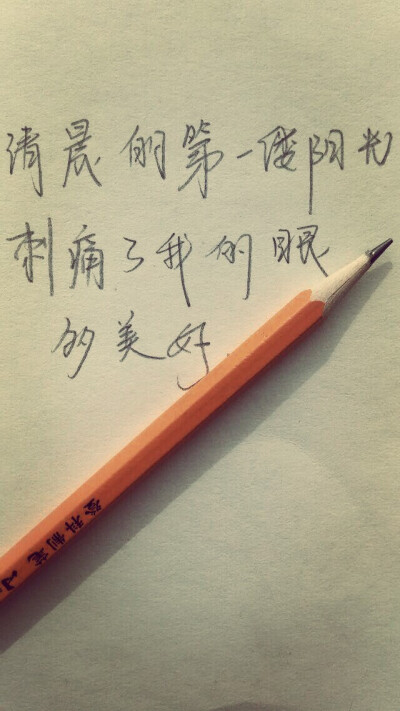 清晨的第一缕阳光
刺痛了我的眼
多美好
科制笔